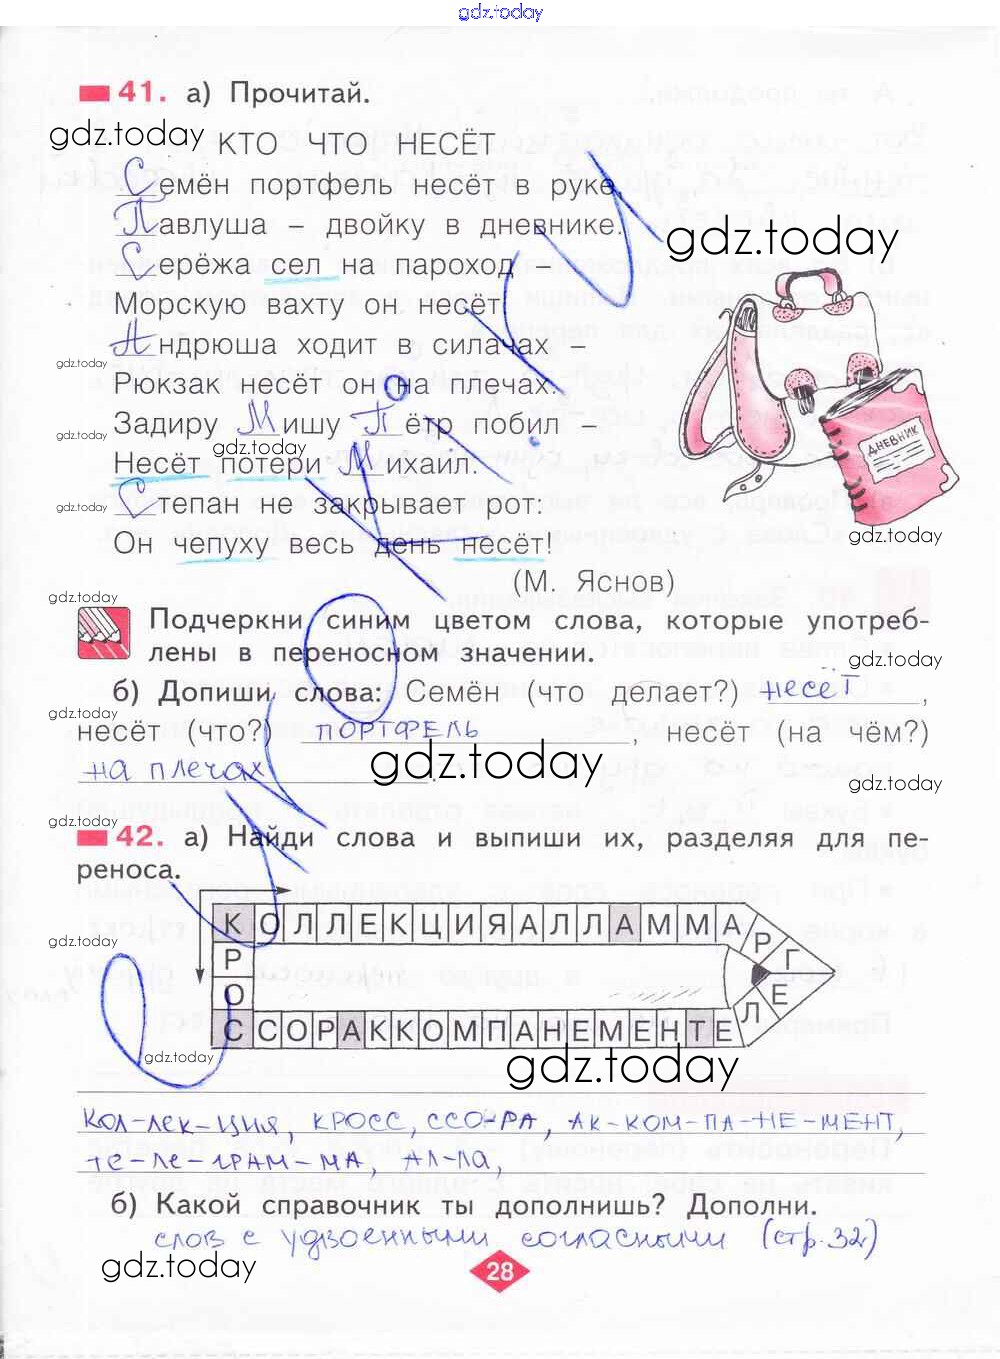 gdz.today
41. а) Прочитай.
gdz.today
КТО ЧТО НЕСЁТ
Семён портфель несёт в руке,
Павлуша – двойку в дневнике.
gdz.today
Серёжа сел на пароход –
Морскую вахту он несёт.
Андрюша ходит в силачах –
gdz.today
Рюкзак несёт он на плечах.
Задиру Мишу Пётр побил –
gdz.today
gdz.today
Несёт потери Михаил.
Степан не закрывает рот:
gdz.today
Он чепуху весь день несёт!
ДНЕВНИК
gdz.today
(М. Яснов)
gdz.today
Подчеркни синим цветом слова, которые употреб-
лены в переносном значении.
gdz.today
б) Допиши слова: Семён (что делает?) несёт,
gdz.today
несёт (что?) портфель, несёт (на чём?)
на плечах.
gdz.today
gdz.today
gdz.today
42. а) Найди слова и выпиши их, разделяя для пе-
реноса.
КОЛЛЕКЦИЯАЛЛАММА
РГЕЛ
Р
О
gdz.today
ССОРАККОМПАНЕМЕНТЕ
gdz.today
gdz.today
кол-лек-ция, кросс, ссо-ра, ак-ком-па-не-мент,
те-ле-грам-ма, ал-ла,
б) Какой справочник ты дополнишь? Дополни.
слов с удвоенными согласными (стр. 32)
gdz.today
28